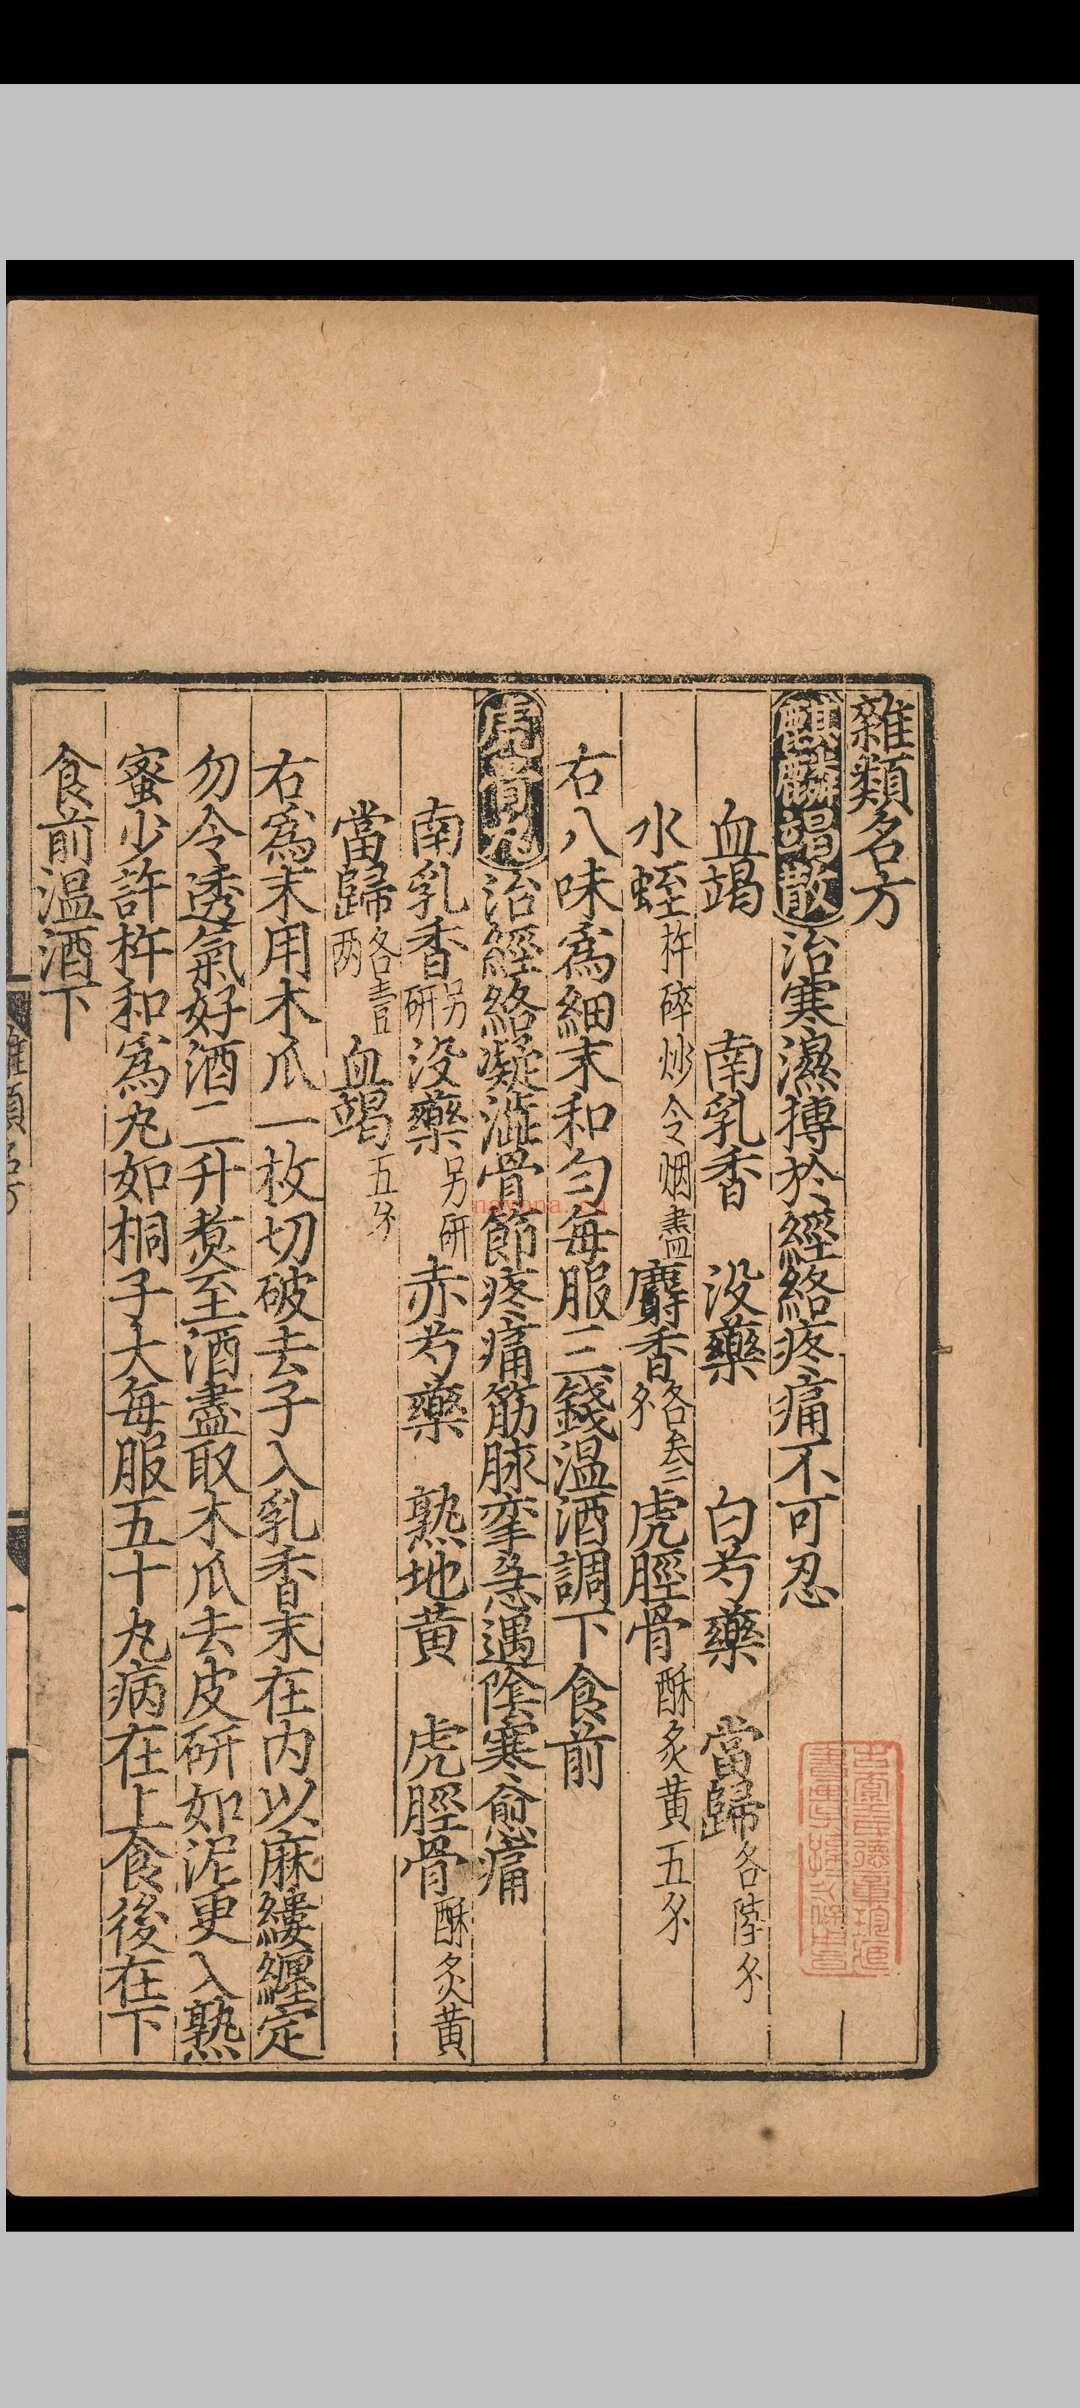 雜類名方
麒麟竭散治寒濕搏於經絡疼痛不可忍
血竭 南乳香 没藥 白芍藥 當歸各陸分
水蛭杵碎炒令烟盡麝香各叁分虎脛骨酥炙黄五分
右八味爲細末和匀每服三錢温酒調下食前
虎骨丸治經絡凝澁骨節疼痛筋脉攣急遇陰寒愈痛
南乳香另研没藥另研赤芍藥 熟地黄 虎脛骨酥炙黄
當歸各壹两血竭五分
右爲末用木瓜一枚切破去子入乳香末在内以麻縷纏定
勿令透氣好酒二升煑至酒盡取木瓜去皮研如泥更入熟
蜜少許杵和爲丸如桐子大每服五十丸病在上食後在下
食前温酒下
雜類名方
一
nayona.cn